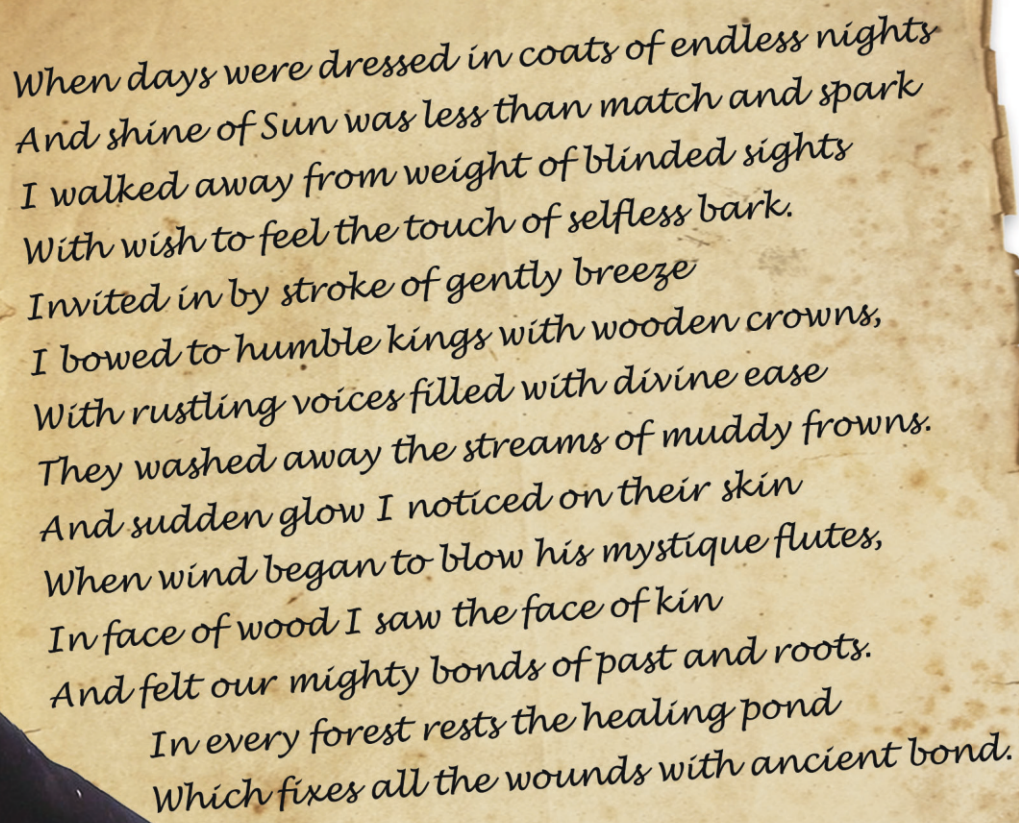 When days were dressed in coats of endless nights
And shine of Sun was less than match and spark
I walked away from weight of blinded sights
With wish to feel the touch of selfless bark.
Invited in by stroke of gently breeze
I bowed to humble kings with wooden crowns,
With rustling voices filled with divine ease
They washed away the streams of muddy frowns.
And sudden glow I noticed on their skin
When wind began to blow his mystique flutes,
In face of wood I saw the face of kin
And felt our mighty bonds of past and roots.
In every forest rests the healing pond
Which fixes all the wounds with ancient bond.